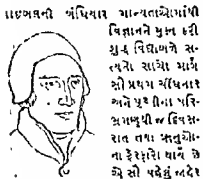 બાઇબલની બંધિયાર માન્યતાઓમાંથી
વિજ્ઞાનને મુક્ત કરી
શુદ્ધ વિદ્યાને સ-
ત્યનો સાચો માર્ગ
સૌ પ્રથમ ચીંધનાર
અને પૃથ્વીના પરિ-
ભ્રમણથી જ દિવસ-
રાત તથા ઋતુઓ-
ના ફેરફારો થાય છે
એ સૌ પહેલું જાહેર